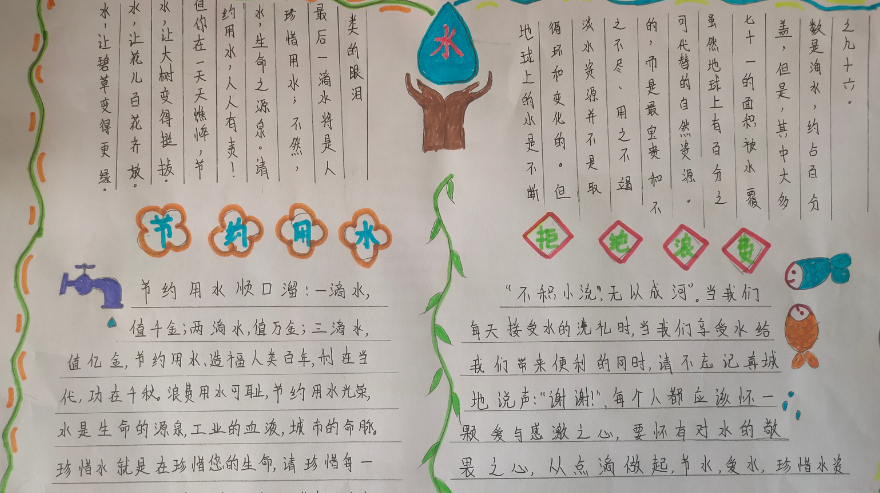 水，让碧草变得更绿。
水，让花儿百花齐放。
水，让大树变得挺拔。
但你在一天天憔悴，节
约用水，人人有责！
水，生命之源泉。请
珍惜用水，不然，
最后一滴水将是人
类的眼泪
水
地球上的水是不断
循环和变化的。但
淡水资源并不是取
之不尽、用之不竭
的，而是最宝贵和不
可代替的自然资源。
虽然地球上有百分之
七十一的面积被水覆
盖，但是，其中大多
数是海水，约占百分
之九十六。
节约用水
节约用水顺口溜：一滴水，
值千金；两滴水，值万金；三滴水，
值亿金，节约用水、造福人类百年，利在当
代，功在千秋。浪费用水可耻，节约用水光荣，
水是生命的源泉，工业的血液，城市的命脉。
珍惜水就是在珍惜您的生命，请珍惜每一
拒绝浪费
“不积小流”，无以成河”。当我们
每天接受水的洗礼时，当我们享受水给
我们带来便利的同时，请不忘记真诚
地说声：“谢谢！”，每个人都应该怀一
颗爱与感激之心，要怀有对水的敬
畏之心，从点滴做起，节水，爱水，珍惜水资